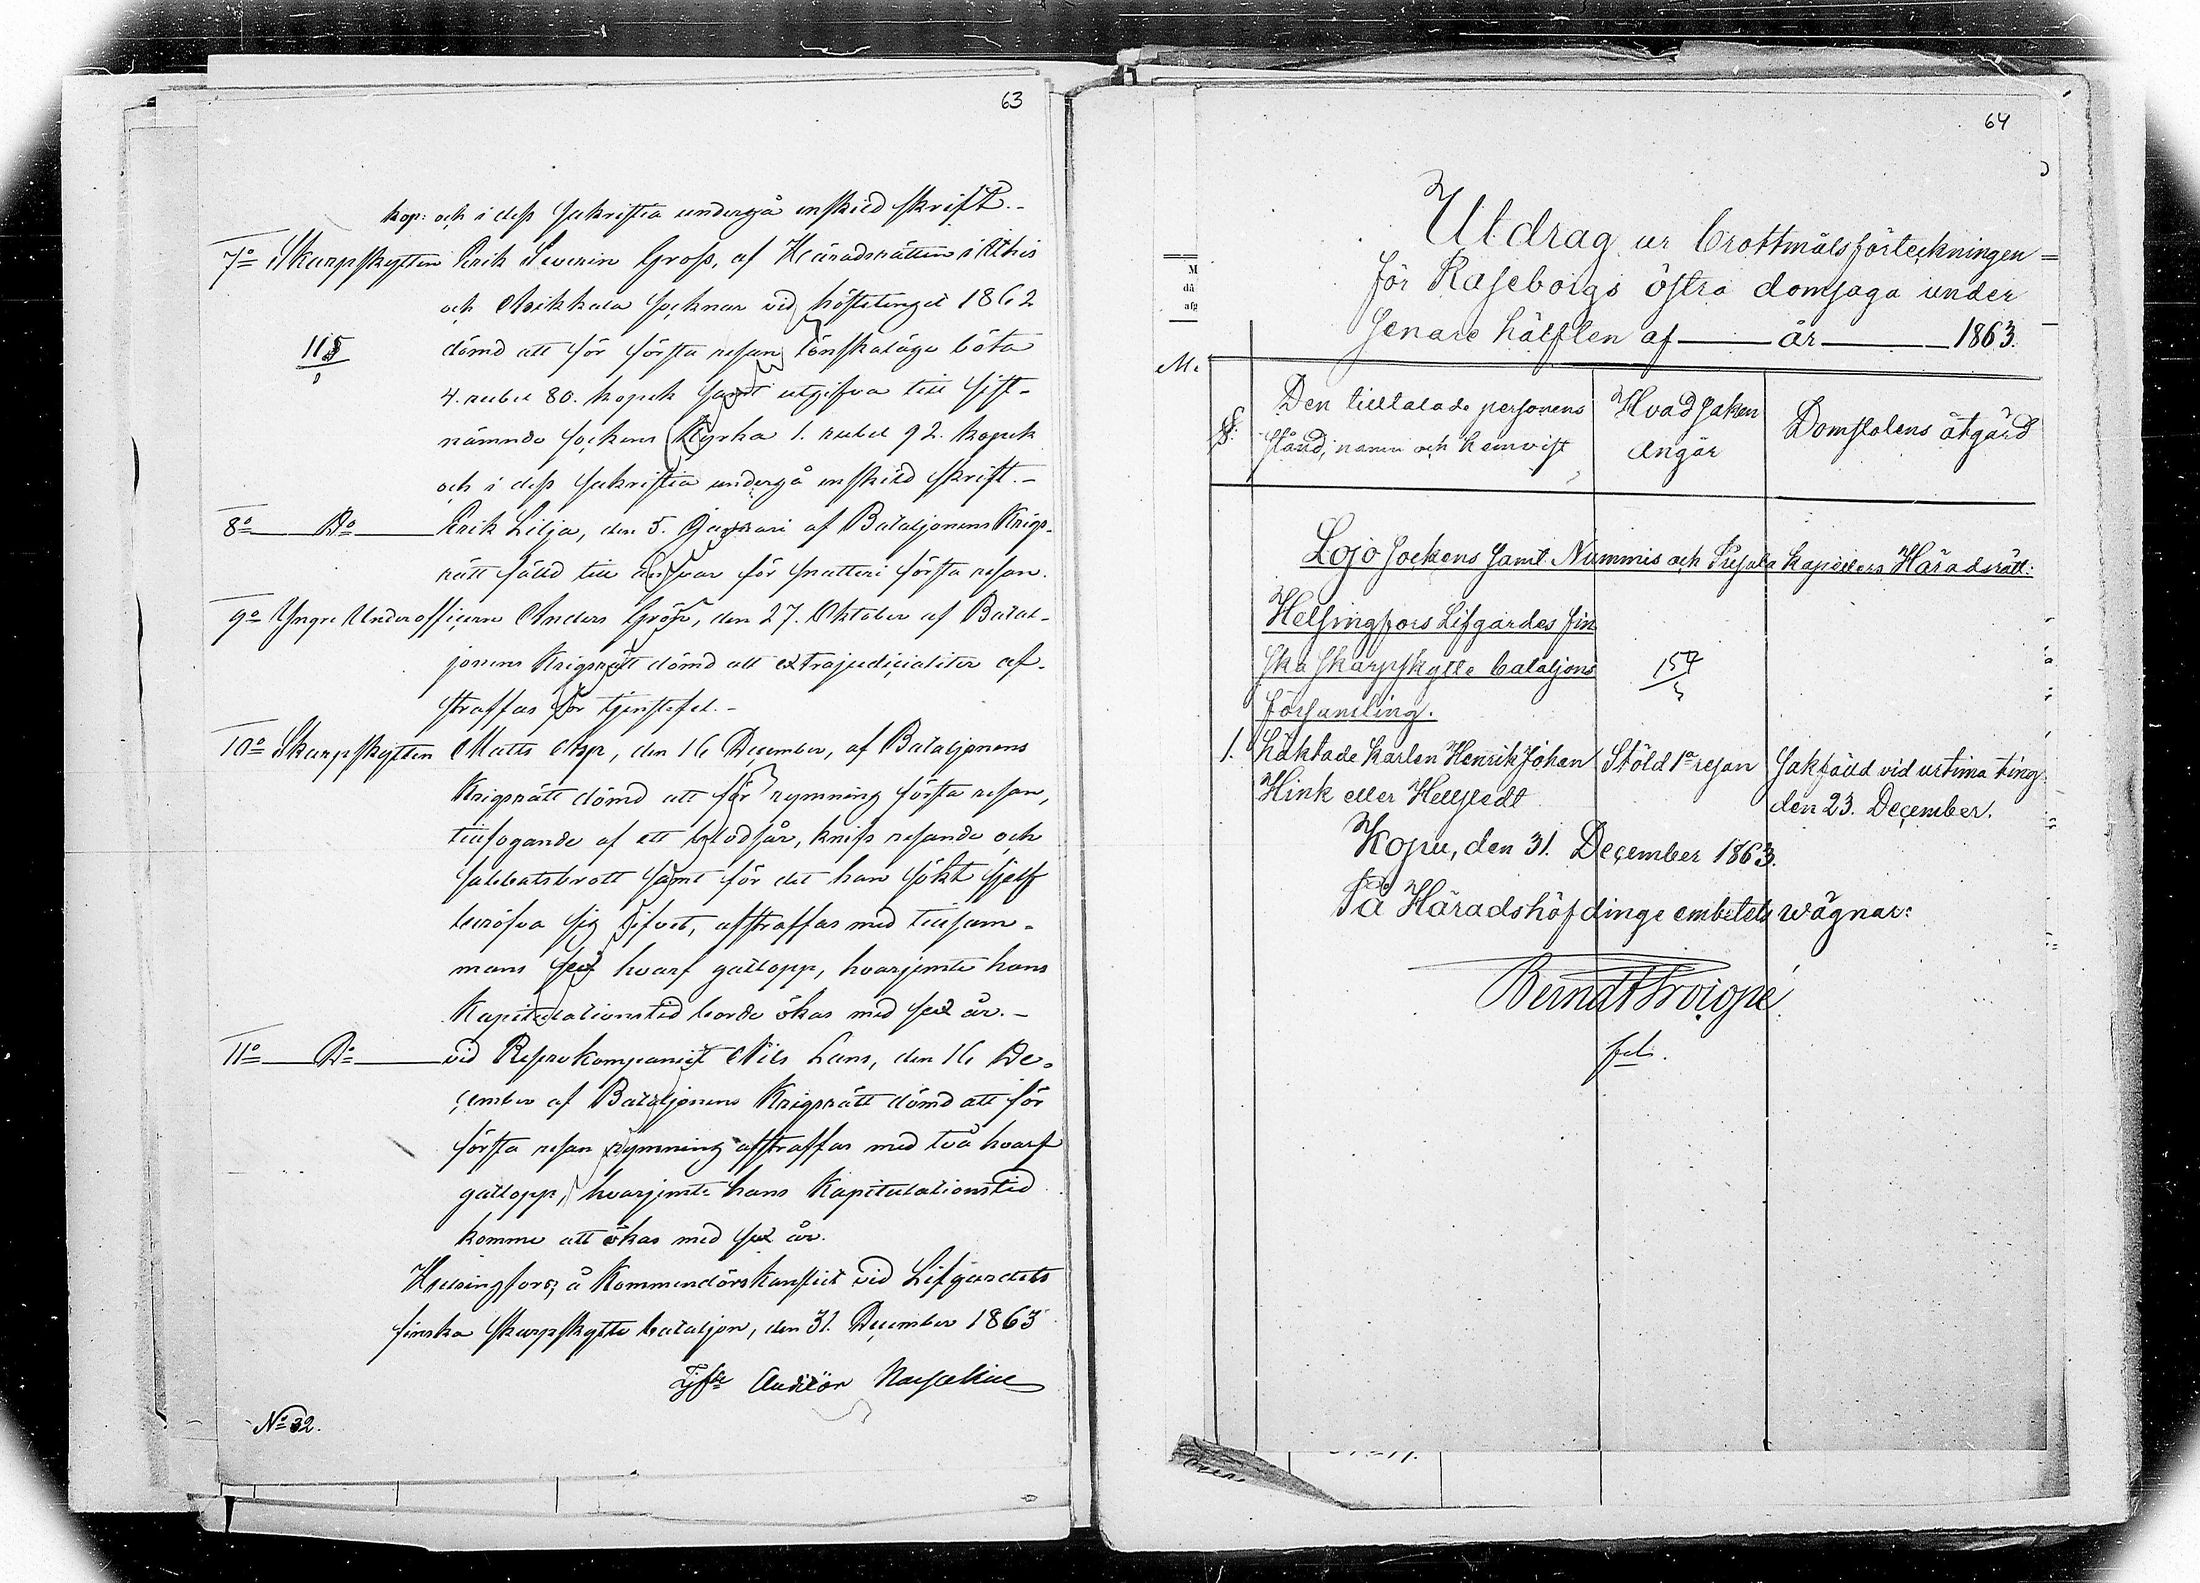 63
kop: och i dess sakristia undergå enskild skrift.-
7:o Skarpskytten Erik Severin Gross, af Häradsrätten i Ithis
och Asikkala socknar vid hösttinget 1862
115
dömd att för första resan lönskaläge böta
4. rubel 80. kopek samt utgifva till sist-
nämnde sockens Kyrka 1. rubel 92. kopek
och i dess sakristia undergå enskild skrift.-
8:o D:o Erik Lilja, den 5. Januari af Bataljonens Krigs-
rätt fälld till ansvar för snatteri första resan.
9:o Yngre Underofficern Anders Gröss, den 27. Oktober af Batal-
jonens Krigsrätt dömd att extrajudicialiter af-
straffas för tjenstefel.-
10:o Skarpskytten Matts Asp, den 16 December, af Bataljonens
Krigsrätt dömd att för rymning första resan,
tillfogande af ett blodsår, knifs resande och
sabbatsbrott samt för det han sökt sjelf
beröfva sig lifvet, afstraffas med tillsam-
mans sex hvarf gatlopp, hvarjemte hans
Kapitulationstid borde ökas med sex år.-
11:o D:o vid Reservkompaniet Nils Lans, den 16 De-
cember af Bataljonens Krigsrätt dömd att för
första resan rymning afstraffas med två hvarf
gatlopp, hvarjemte hans Kapitulationstid
komme att ökas med sex år.
Helsingfors, å Kommendörskansliet vid Lifgardets
finska Skarpskytte bataljon, den 31. December 1863
Auditör
No 32.
64
Utdrag ur brottmålsförteckningen
för Raseborgs östra domsaga under
senare hälften af år 1863.
§: Den tilltalade personens stånd, namn och hemvist
Hvad saken angår
Domstolens åtgärd
Lojo Sockens samt Nummis och Pusula kapellers Häradsrätt:
Helsingfors Lifgardes fin
ska skarpskytte bataljons
församling.
157
1. Häktade karlen Henrik Johan Stöld 1:a resan Sakfälld vid urtima ting
Hink eller Hellstedt den 23. December.
Kopu, den 31. December 1863.
På Häradshöfdinge embetets wägnar:
Berndt